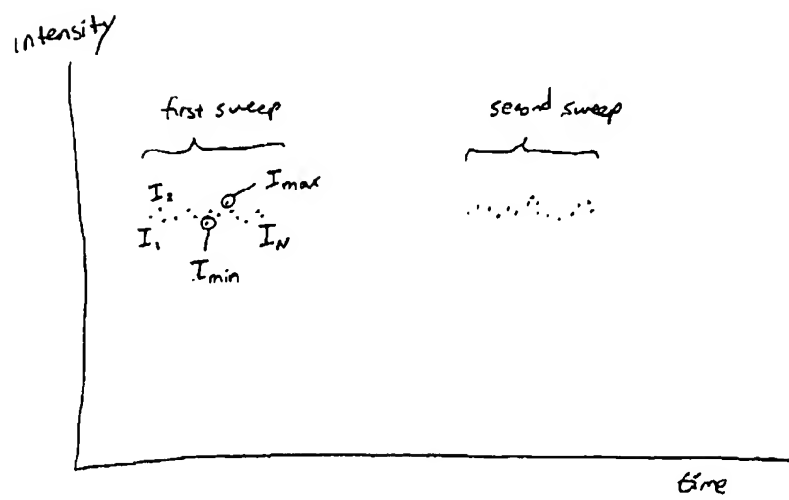 intensity
first sweep
second sweep
I2
Imax
I1
IN
Imin
time